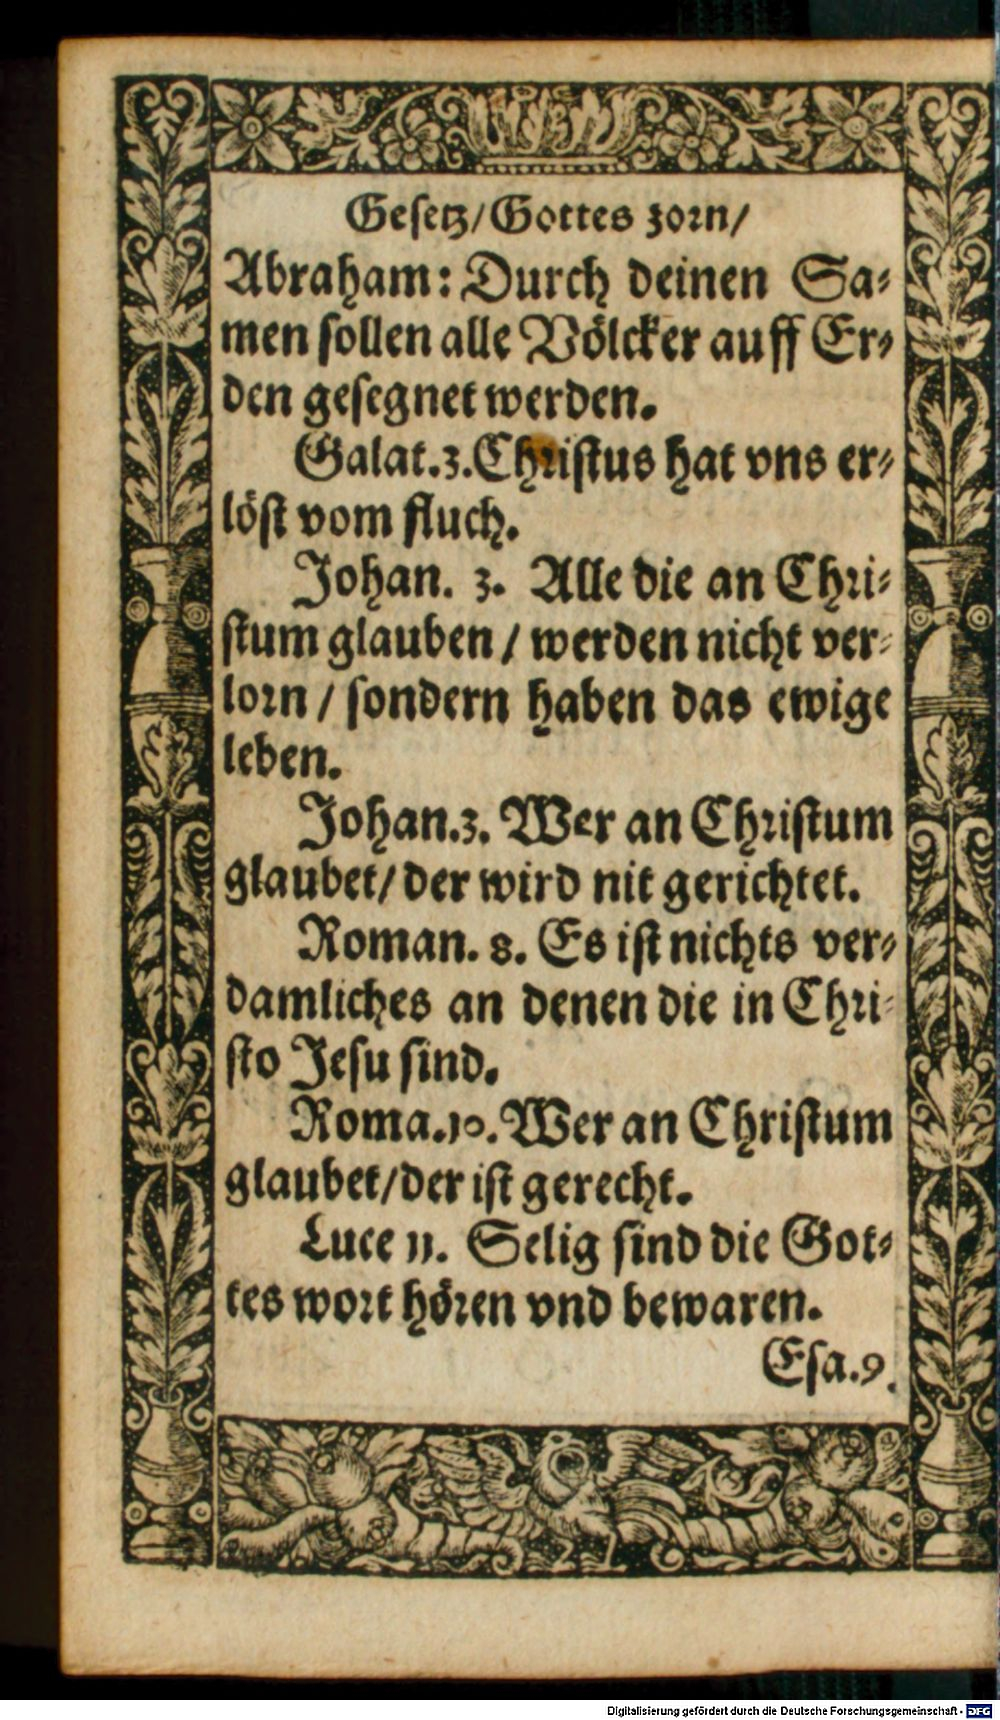 Gesetz/Gottes zorn/
Abraham: Durch deinen Sa-
men sollen alle Völcker auff Er-
den gesegnet werden.
Galat.3.Christus hat vns er-
löst vom fluch.
Johan. 3. Alle die an Chri-
stum glauben / werden nicht ver-
lorn / sondern haben das ewige
leben.
Johan.3. Wer an Christum
glaubet/ der wird nit gerichtet.
Roman. 8. Es ist nichts ver-
damliches an denen die in Chri-
sto Jesu sind.
Roma.10. Wer an Christum
glaubet/der ist gerecht.
Luce 11. Selig sind die Got-
tes wort hören vnd bewaren.
Esa.9.
Digitalisierung gefördert durch die Deutsche Forschungsgemeinschaft - DFG